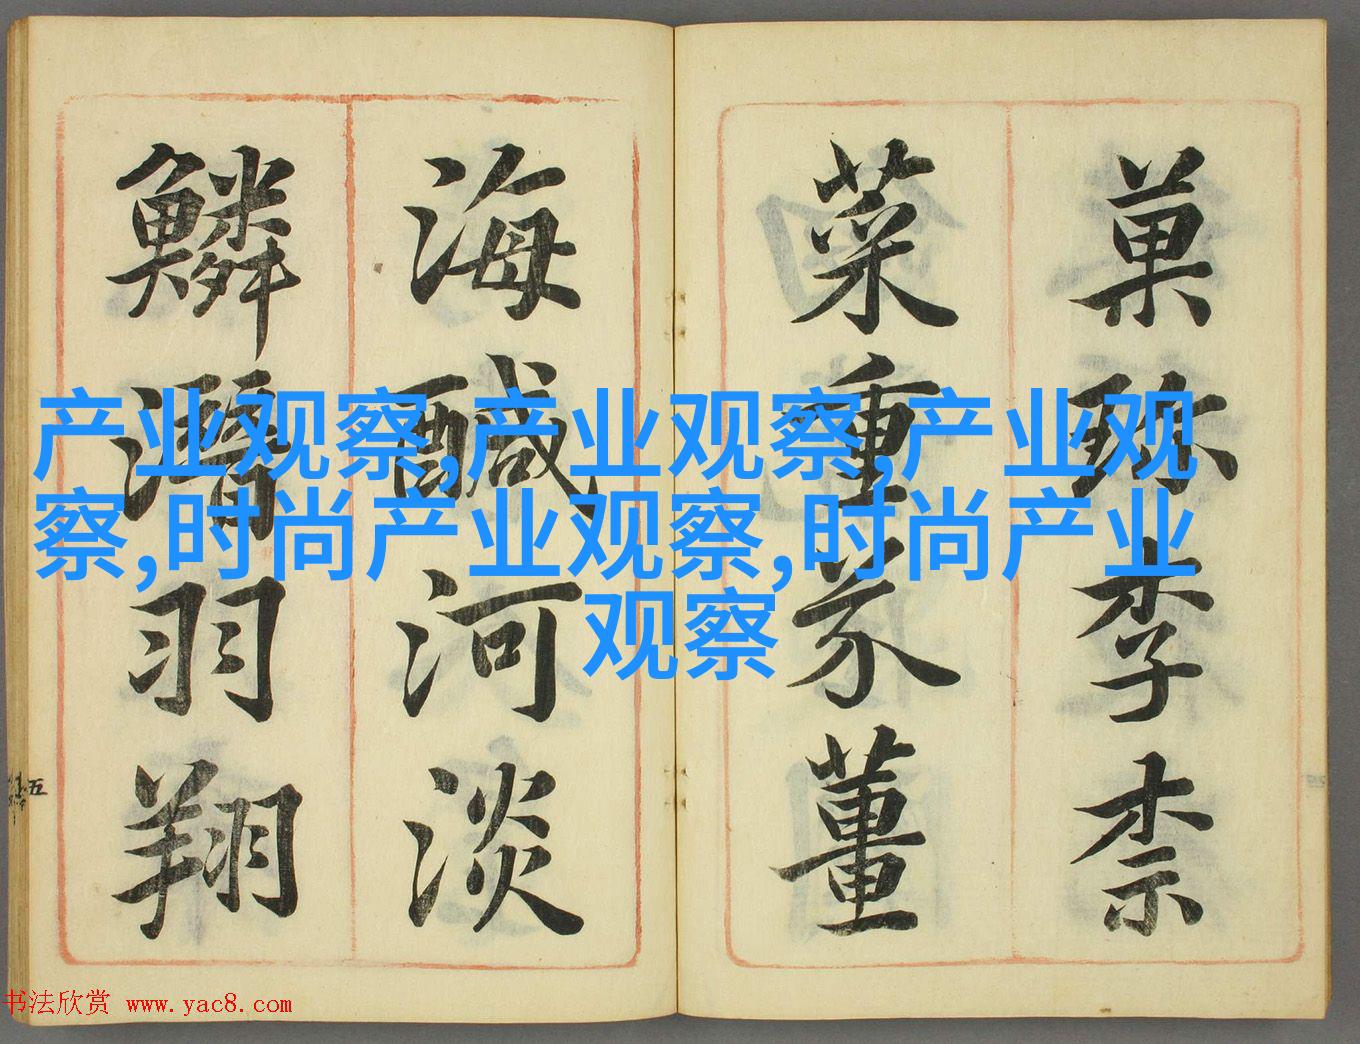 菓珎李柰
菜重芥薑
海醎河淡
鱗潛羽翔
五
产业观察,产业观察,产业观
察,时尚产业观察,时尚产业
观察
书法欣赏 www.yac8.com